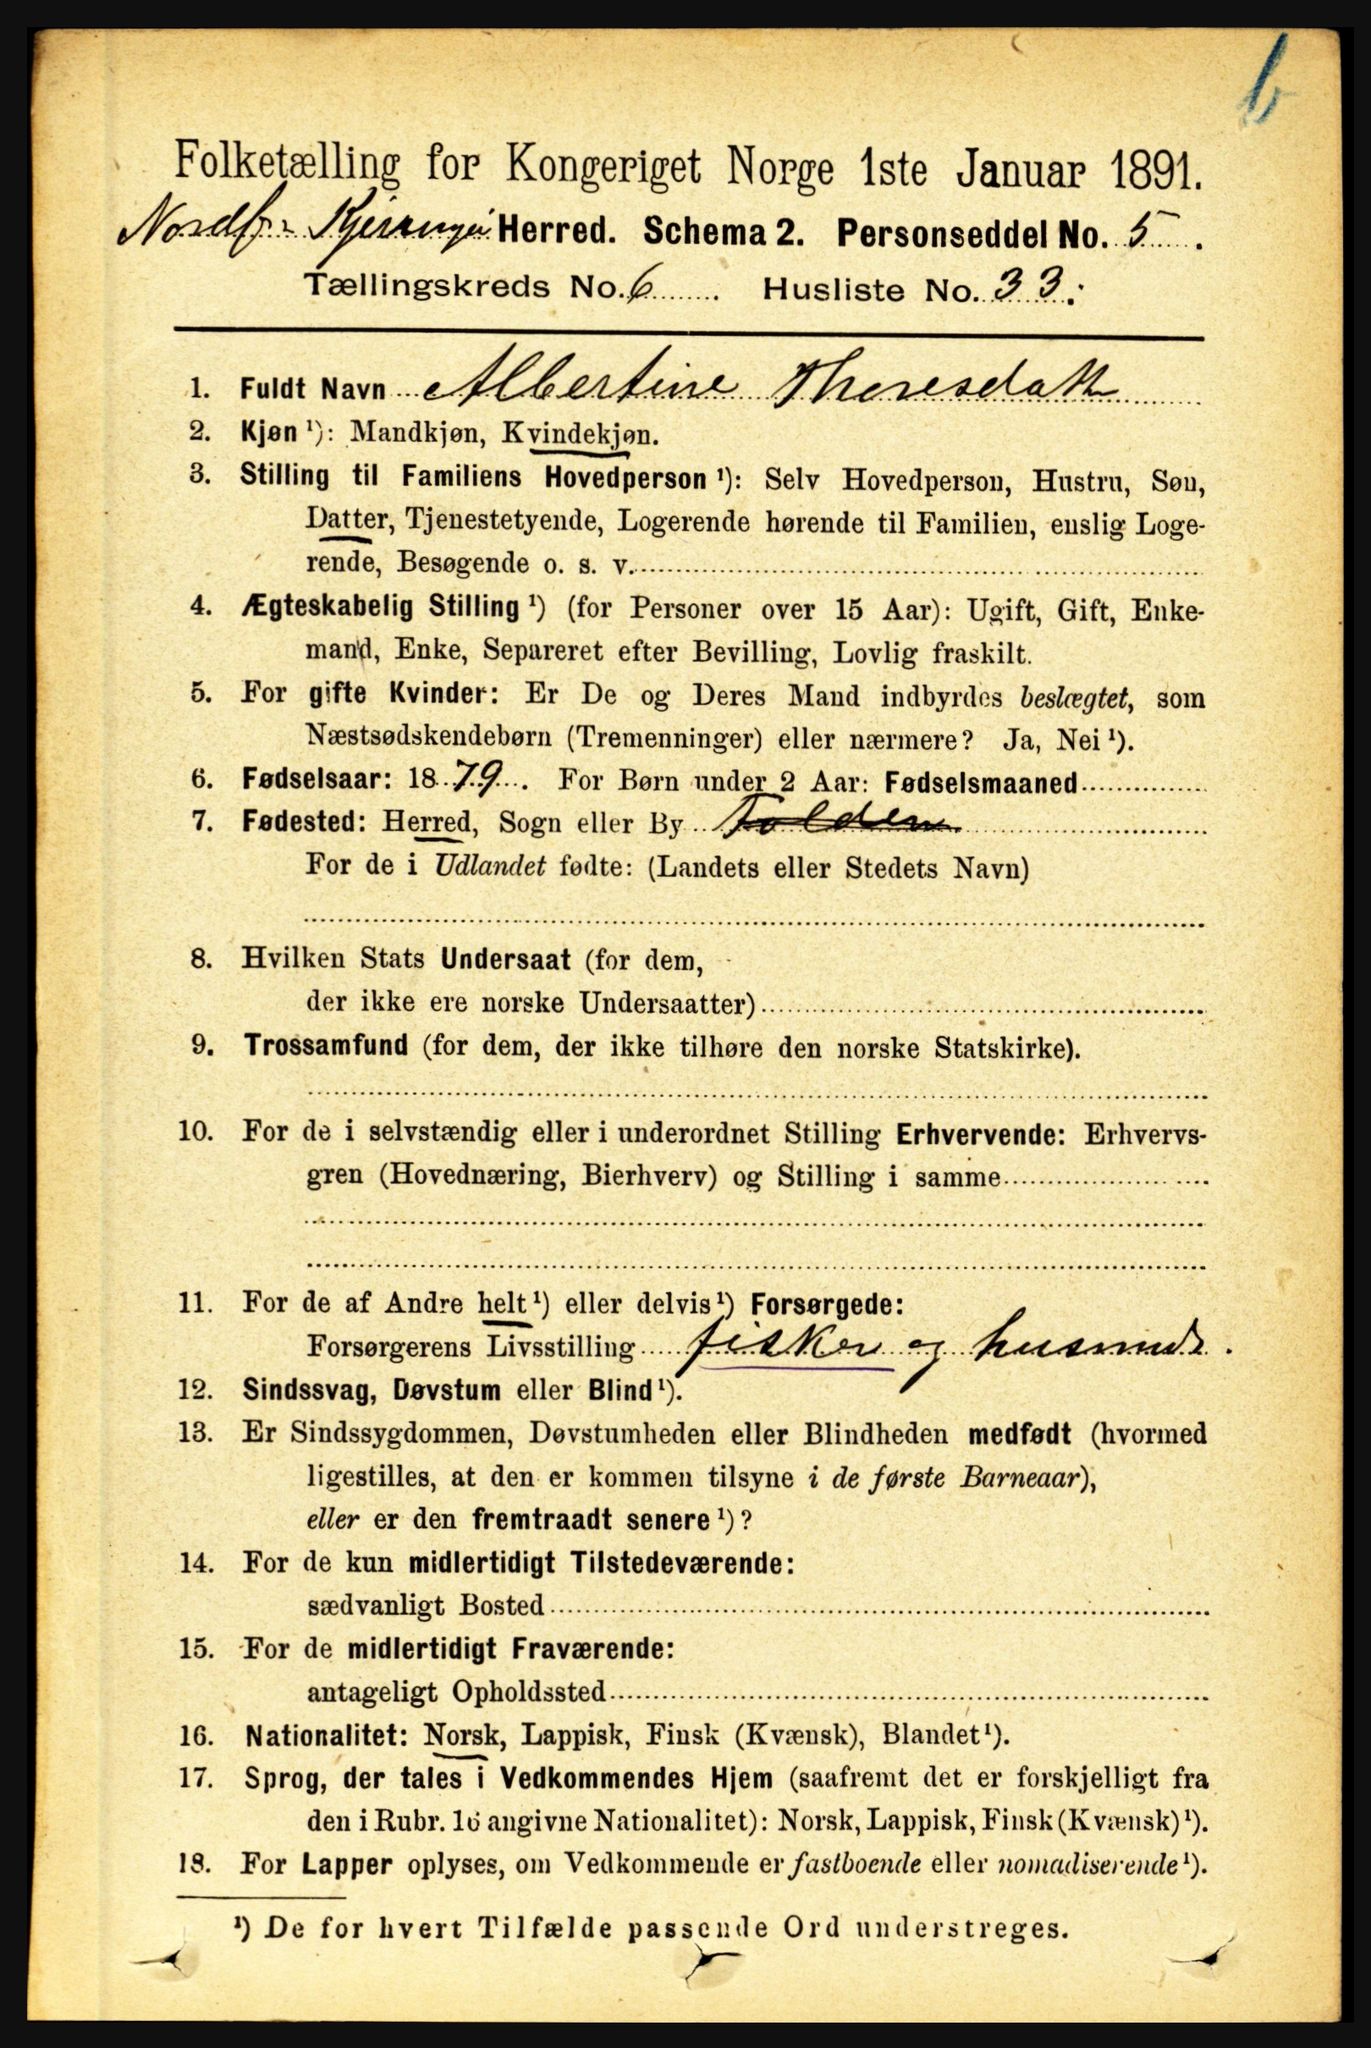 b
Folketælling for Kongeriget Norge 1ste Januar 1891.
Nordf.- Kjerringø Herred. Schema 2. Personseddel No. 5.
Tællingskreds No. 6. Husliste No. 33.
1. Fuldt Navn Albertine Thoresdatt
2. Kjøn ¹): Mandkjøn, Kvindekjøn.
3. Stilling til Familiens Hovedperson ¹): Selv Hovedperson, Hustru, Søn,
Datter, Tjenestetyende, Logerende hørende til Familien, enslig Loge-
rende, Besøgende o. s. v.
4. Ægteskabelig Stilling ¹) (for Personer over 15 Aar): Ugift, Gift, Enke-
mand, Enke, Separeret efter Bevilling, Lovlig fraskilt.
5. For gifte Kvinder: Er De og Deres Mand indbyrdes beslægtet, som
Næstsødskendebørn (Tremenninger) eller nærmere? Ja, Nei ¹).
6. Fødselsaar: 1879. For Børn under 2 Aar: Fødselsmaaned
7. Fødested: Herred, Sogn eller By Folden
For de i Udlandet fødte: (Landets eller Stedets Navn)
8. Hvilken Stats Undersaat (for dem,
der ikke ere norske Undersaatter)
9. Trossamfund (for dem, der ikke tilhøre den norske Statskirke).
10. For de i selvstændig eller i underordnet Stilling Erhvervende: Erhvervs-
gren (Hovednæring, Bierhverv) og Stilling i samme
11. For de af Andre helt ¹) eller delvis ¹) Forsørgede:
Forsørgerens Livsstilling fisker og husmd.
12. Sindssvag, Døvstum eller Blind ¹).
13. Er Sindssygdommen, Døvstumheden eller Blindheden medfødt (hvormed
ligestilles, at den er kommen tilsyne i de første Barneaar),
eller er den fremtraadt senere ¹)?
14. For de kun midlertidigt Tilstedeværende:
sædvanligt Bosted
15. For de midlertidigt Fraværende:
antageligt Opholdssted
16. Nationalitet: Norsk, Lappisk, Finsk (Kvænsk), Blandet ¹).
17. Sprog, der tales i Vedkommendes Hjem (saafremt det er forskjelligt fra
den i Rubr. 16 angivne Nationalitet): Norsk, Lappisk, Finsk (Kvænsk) ¹).
18. For Lapper oplyses, om Vedkommende er fastboende eller nomadiserende ¹).
¹) De for hvert Tilfælde passende Ord understreges.